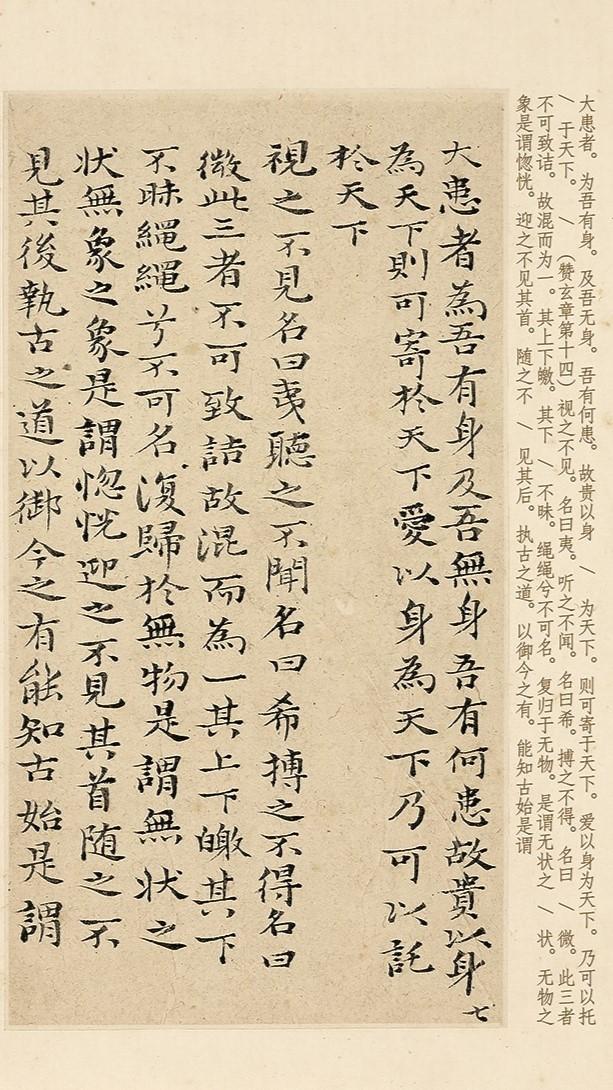 大患者。为吾有身。及吾无身。吾有何患。故贵以身 \ 为天下。则可寄于天下。爱以身为天下。乃可以托
\ 于天下。 \ \ (赞玄章第十四)视之不见。名曰夷。听之不闻。名曰希。搏之不得。名曰 \ 微。此三者
不可致诘。故混而为一。其上下皦。其下 \ 不昧。绳绳兮不可名。复归于无物。是谓无状之 \ 状。无物之
象是谓惚恍。迎之不见其首。随之不 \ 见其后。执古之道。以御今之有。能知古始是谓
大患者為吾有身及吾無身吾有何患故貴以身
七
為天下則可寄於天下愛以身為天下乃可以託
於天下
視之不見名曰夷聽之不聞名曰希搏之不得名曰
微此三者不可致詰故混而為一其上下皦其下
不昧繩繩兮不可名復歸於無物是謂無状之
状無象之象是謂惚恍迎之不見其首随之不
見其後執古之道以御今之有能知古始是謂